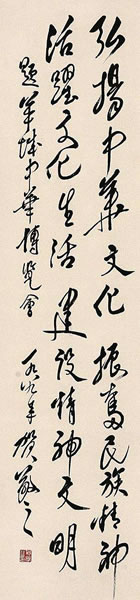 弘揚中華文化 振奮民族精神
活躍文化生活 建設精神文明
題羊城中華博覽會
一九九〇年 賀敬之